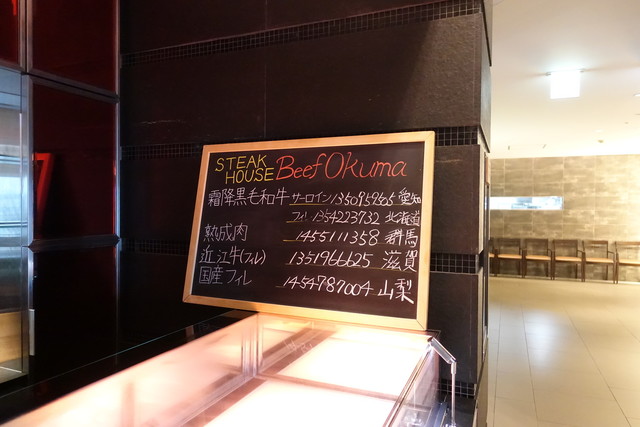 STEAK HOUSE Beef Okuma
霜降黒毛和牛 サーロイン 1350959525 愛知
フィレ 1354223732 北海道
熟成肉 1455111358 群馬
近江牛(フィレ) 1351966625 滋賀
国産フィレ 1454787004 山梨